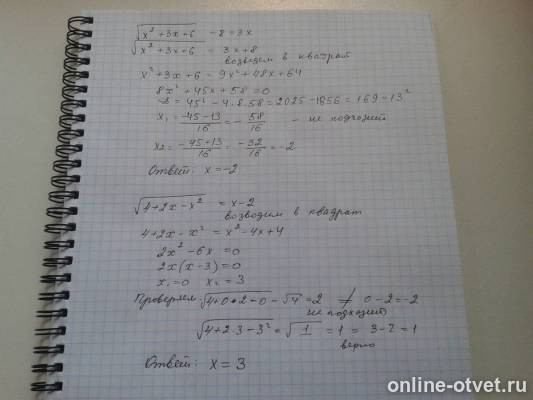 √x²+3x+6 -8=3x
√x²+3x+6 = 3x+8
возводем в квадрат
x²+3x+6=9x²+48x+64
8x²+45x+58=0
D=45²-4·8·58=2025-1856=169=13²
x₁=-45-13/16=-58/16 - не подходит
x₂=-45+13/16=-32/16=-2
Ответ: x=-2
√4+2x-x² = x-2
возводем в квадрат
4+2x-x²=x²-4x+4
2x²-6x=0
2x(x-3)=0
x₁=0 x₂=3
Проверяем: √4+0·2-0=√4=2 ≠ 0-2=-2
не подходит
√4+2·3-3²=√1=1=3-2=1
верно
Ответ: x=3
online-otvet.ru